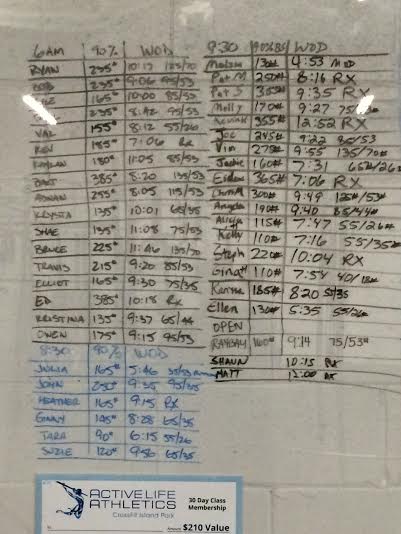 6AM 90% WOD
RYAN 235# 10:17 125/70
BOB 235# 9:06 95/53
165# 10:00 85/53
235# 8:42 95/53
VAL 155# 8:12 55/26
KEN 185# 7:06 RX
KAYLAN 180# 11:05 85/53
BART 385# 8:20 135/53
ADNAN 255# 8:05 115/53
KRYSTA 135# 10:01 65/35
SHAE 195# 11:08 75/53
BRUCE 225# 11:46 135/70
TRAVIS 215# 9:20 85/53
ELLIOT 165# 9:30 75/35
ED 385# 10:18 RX
KRISTINA 135# 9:37 65/44
OWEN 175# 9:15 95/53
8:30 90% WOD
JULIA 165# 5:46 35/53
JOHN 250# 9:35 95/35
HEATHER 165# 9:15 RX
GINNY 145# 8:28 65/35
TARA 90# 6:15 55/26
SUZIE 120# 9:56 65/35
9:30 90% BS WOD
Melissa 130# 4:53 MOD
Pat M 250# 8:16 RX
Pat S 355# 9:35 RX
Molly 170# 9:27
355# 12:52 RX
Joe 245# 9:22 35/53
Vin 275# 9:55 135/70#
Jackie 160# 7:31 65#/26#
365# 7:06 RX
300# 9:49 125#/53#
Angela 190# 9:40 85/44#
Alicia 115# 7:47 55/26#
Kelly 110# 7:16 55/35#
Steph 220# 10:04 RX
Gina 110# 7:54 40/18#
Karina 185# 8:20 55/35
Ellen 130# 5:35 55/26#
OPEN
RAYBAY 160# 9:14 75/53#
SHAUN 10:15 RX
MATT 12:00 RX
ACTIVELIFE
ATHLETICS
CROSSFIT ISLAND PARK
30 Day Class
Membership
Amount $210 Value